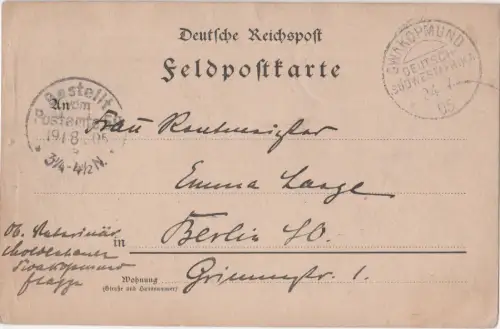 Deutsche Reichspost
Feldpostkarte
SWAKOPMUND
DEUTSCH-
SÜDWESTAFRIKA
24 7
05
Bestellt
vom
Postamte
19/8 05
3¼-4½N.
An
Frau Rentmeister
Emma Lange
in Berlin SO.
Grimmstr. 1.
Wohnung
(Straße und Hausnummer)
Ob. Veterinär
Swakopmund